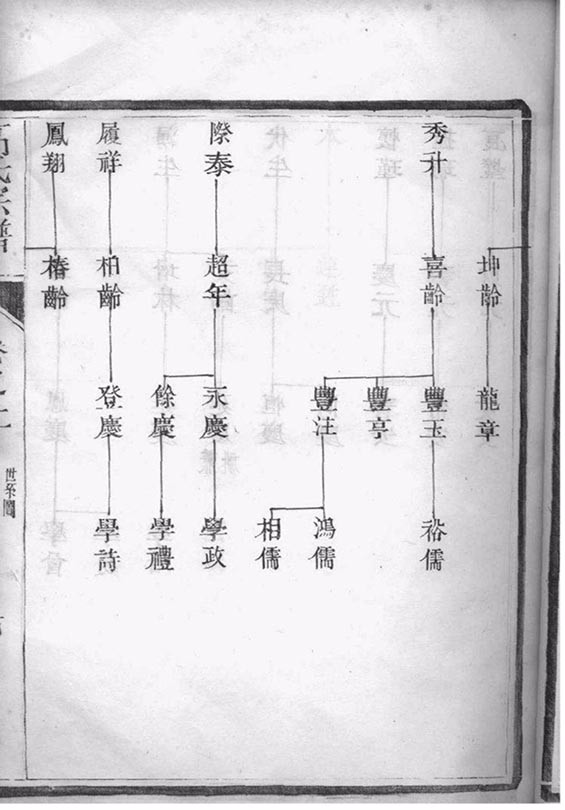 坤齡
龍章
秀升
喜齡
豐玉
裕儒
豐亭
豐注
鴻儒
相儒
際泰
超年
永慶
學政
餘慶
學禮
履祥
柏齡
登慶
學詩
鳳翔
椿齡
世系圖